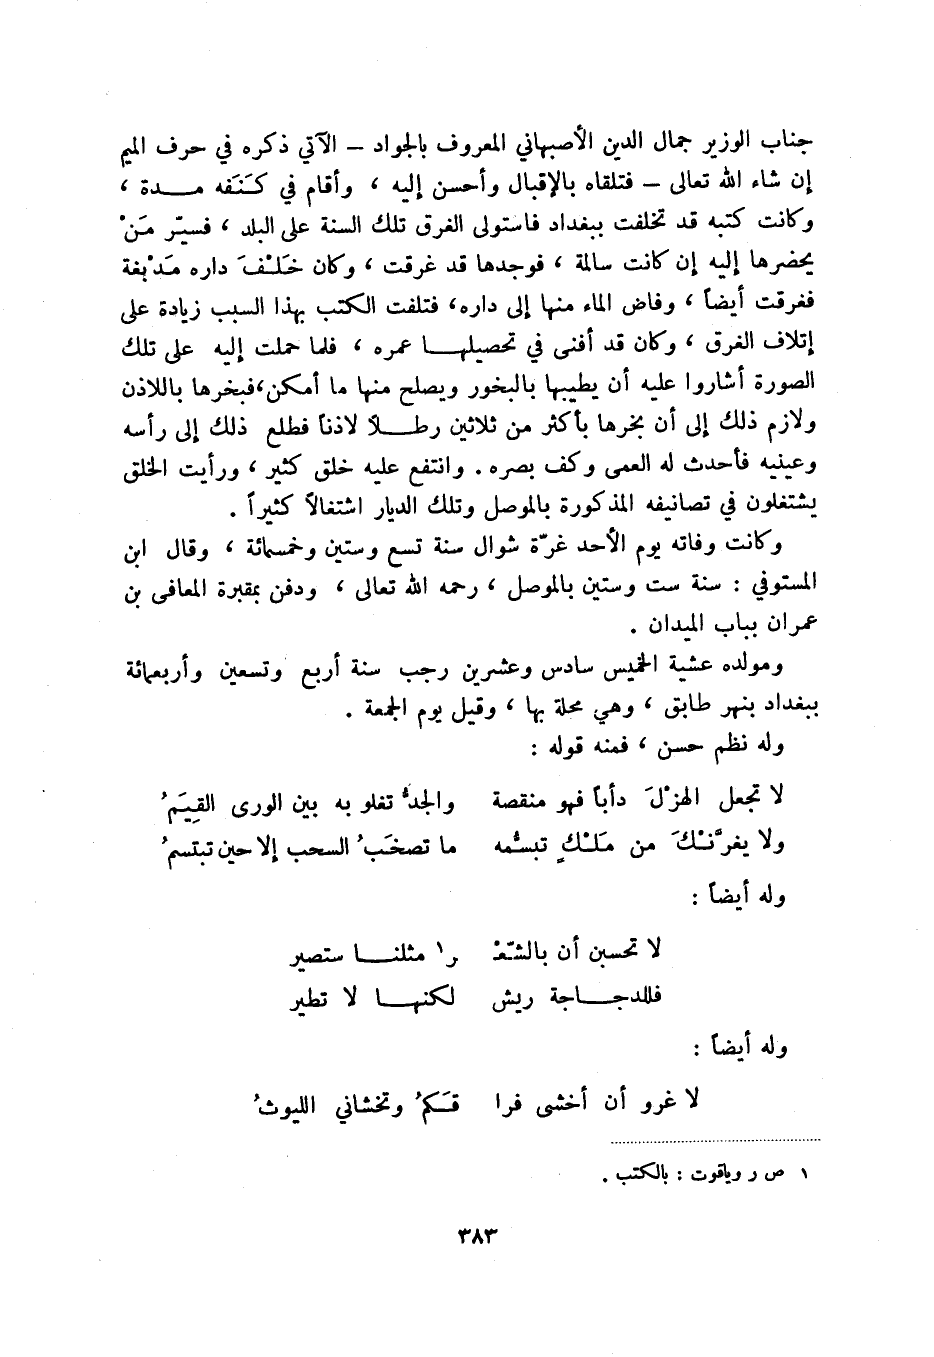 جناب الوزير جمال الدين الأصبهاني المعروف بالجواد – الآتي ذكره في حرف الميم
إن شاء الله تعالى – فتلقاه بالإقبال وأحسن إليه ، وأقام في كَنَفه مـدة ،
وكانت كتبه قد تخلفت ببغداد فاستولى الغرق تلك السنة على البلد ، فسيّر مَنْ
يحضرها إليه إن كانت سالمة ، فوجدها قد غرقت ، وكان خَلْفَ داره مَدْبغة
فغرقت أيضاً ، وفاض الماء منها إلى داره، فتلفت الكتب بهذا السبب زيادة على
إتلاف الغرق ، وكان قد أفنى في تحصيلهـا عمره ، فلما حملت إليه على تلك
الصورة أشاروا عليه أن يطيبها بالبخور ويصلح منها ما أمكن،فبخرها باللاذن
ولازم ذلك إلى أن بخرها بأكثر من ثلاثين رطـلاً لاذناً فطلع ذلك إلى رأسه
وعينيه فأحدث له العمى وكف بصره . وانتفع عليه خلق كثير ، ورأيت الخلق
يشتغلون في تصانيفه المذكورة بالموصل وتلك الديار اشتغالاً كثيراً .
وكانت وفاته يوم الأحد غرّة شوال سنة تسع وستين وخمسمائة ، وقال ابن
المستوفي : سنة ست وستين بالموصل ، رحمه الله تعالى ، ودفن بمقبرة المعافى بن
عمران بباب الميدان .
ومولده عشية الخميس سادس وعشرين رجب سنة أربع وتسعين وأربعمائة
ببغداد بنهر طابق ، وهي محلة بها ، وقيل يوم الجمعة .
وله نظم حسن ، فمنه قوله :
لا تجعل الهزْلَ دأباً فهو منقصة والجدُّ تغلو به بين الورى القِيَمُ
ولا يغرَّنْكَ من مَلْكٍ تبسُّمه ما تصخَبُ السحب إلا حين تبتسمُ
وله أيضاً :
لا تحسبن أن بالشّعْـ ـر١ مثلنـا ستصير
فللدجـاجة ريش لكنهـا لا تطير
وله أيضاً :
لا غرو أن أخشى فرا قَـكمُ وتخشاني الليوثُ
١ ص ر وياقوت : بالكتب .
٣٨٣